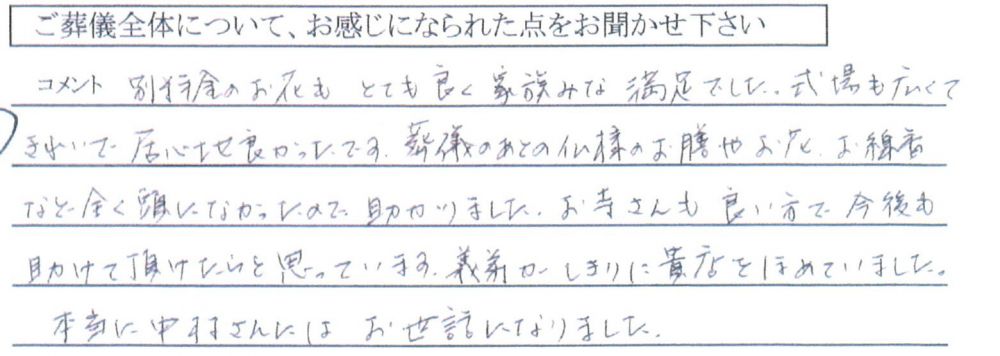 ご葬儀全体について、お感じになられた点をお聞かせ下さい
コメント 別行金のお花も とても良く家族みな満足でした。式場も広くて
きれいで居心地良かったです。葬儀のあとの仏様のお膳やお花、お線香
など全く頭になかったので助かりました。お寺さんも良い方で今後も
助けて頂けたらと思っています。義弟がしきりに貴店をほめていました。
本当に中村さんにはお世話になりました。